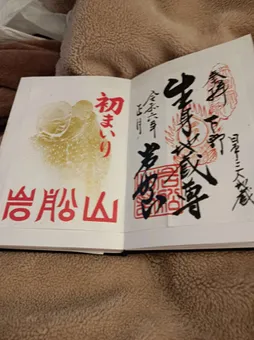 初まいり
岩船山
奉拝
下野
日本三大地蔵
生身地蔵尊
令和六年
正月
岩船山